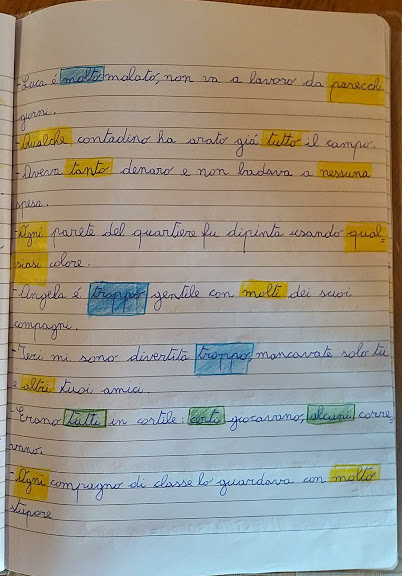 -Luca é molto malato, non va a lavoro da parecchi
giorni.
-Qualche contadino ha arato giá tutto il campo.
-Aveva tanto denaro e non badava a nessuna
spesa.
-Ogni parete del quartiere fu dipinta usando qual=
siasi colore.
-Angela é troppo gentile con molti dei suoi
compagni.
-Ieri mi sono divertita troppo, mancavate solo tu
e altri tuoi amici.
-Erano tutti in cortile: certi giocavano, alcuni corre=
vano.
-Ogni compagno di classe lo guardava con molto
stupore